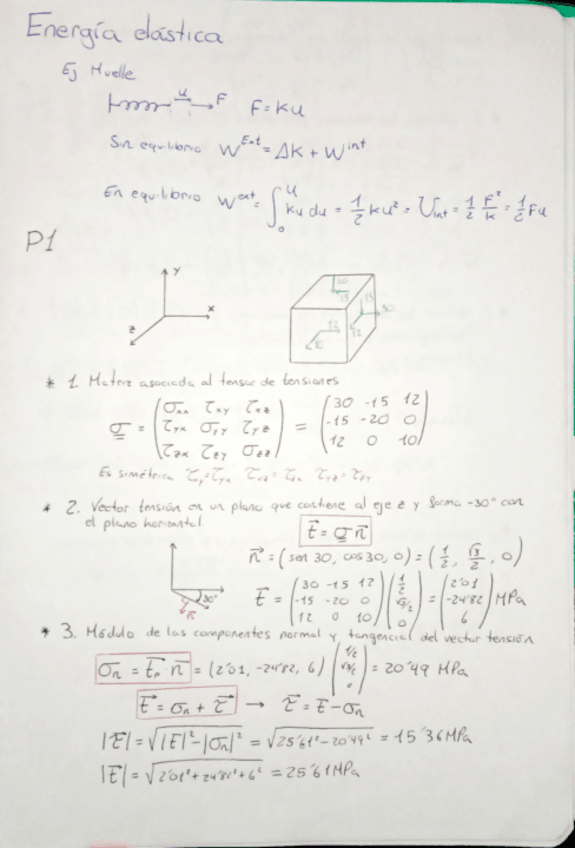 Energía elástica
Ej Muelle
u F F = Ku
Sin equilibrio W^Ext = ΔK + W^int
En equilibrio W^ext = ∫₀^u Ku du = 1/2 Ku² = U_int = 1/2 F²/K = 1/2 Fu
P1
y
x
z
20 15 15 30
12 12
10
* 1. Matriz asociada al tensor de tensiones
σ = (σxx τxy τxz; τyx σyy τyz; τzx τzy σzz) = (30 -15 12; -15 -20 0; 12 0 10)
Es simétrica τxy = τyx τxz = τzx τyz = τzy
* 2. Vector tensión en un plano que contiene al eje z y forma -30° con
el plano horizontal
t = σ n
n = (sen 30, cos 30, 0) = (1/2, √3/2, 0)
30°
n
t = (30 -15 12; -15 -20 0; 12 0 10) (1/2; √3/2; 0) = (2'01; -24'82; 6) MPa
* 3. Módulo de las componentes normal y tangencial del vector tensión
σn = t · n = (2'01, -24'82, 6) (1/2; √3/2; 0) = 20'49 MPa
t = σn + τ → τ = t - σn
|τ| = √(|t|² - |σn|²) = √(25'61² - 20'49²) = 15'36 MPa
|t| = √(2'01² + 24'82² + 6²) = 25'61 MPa